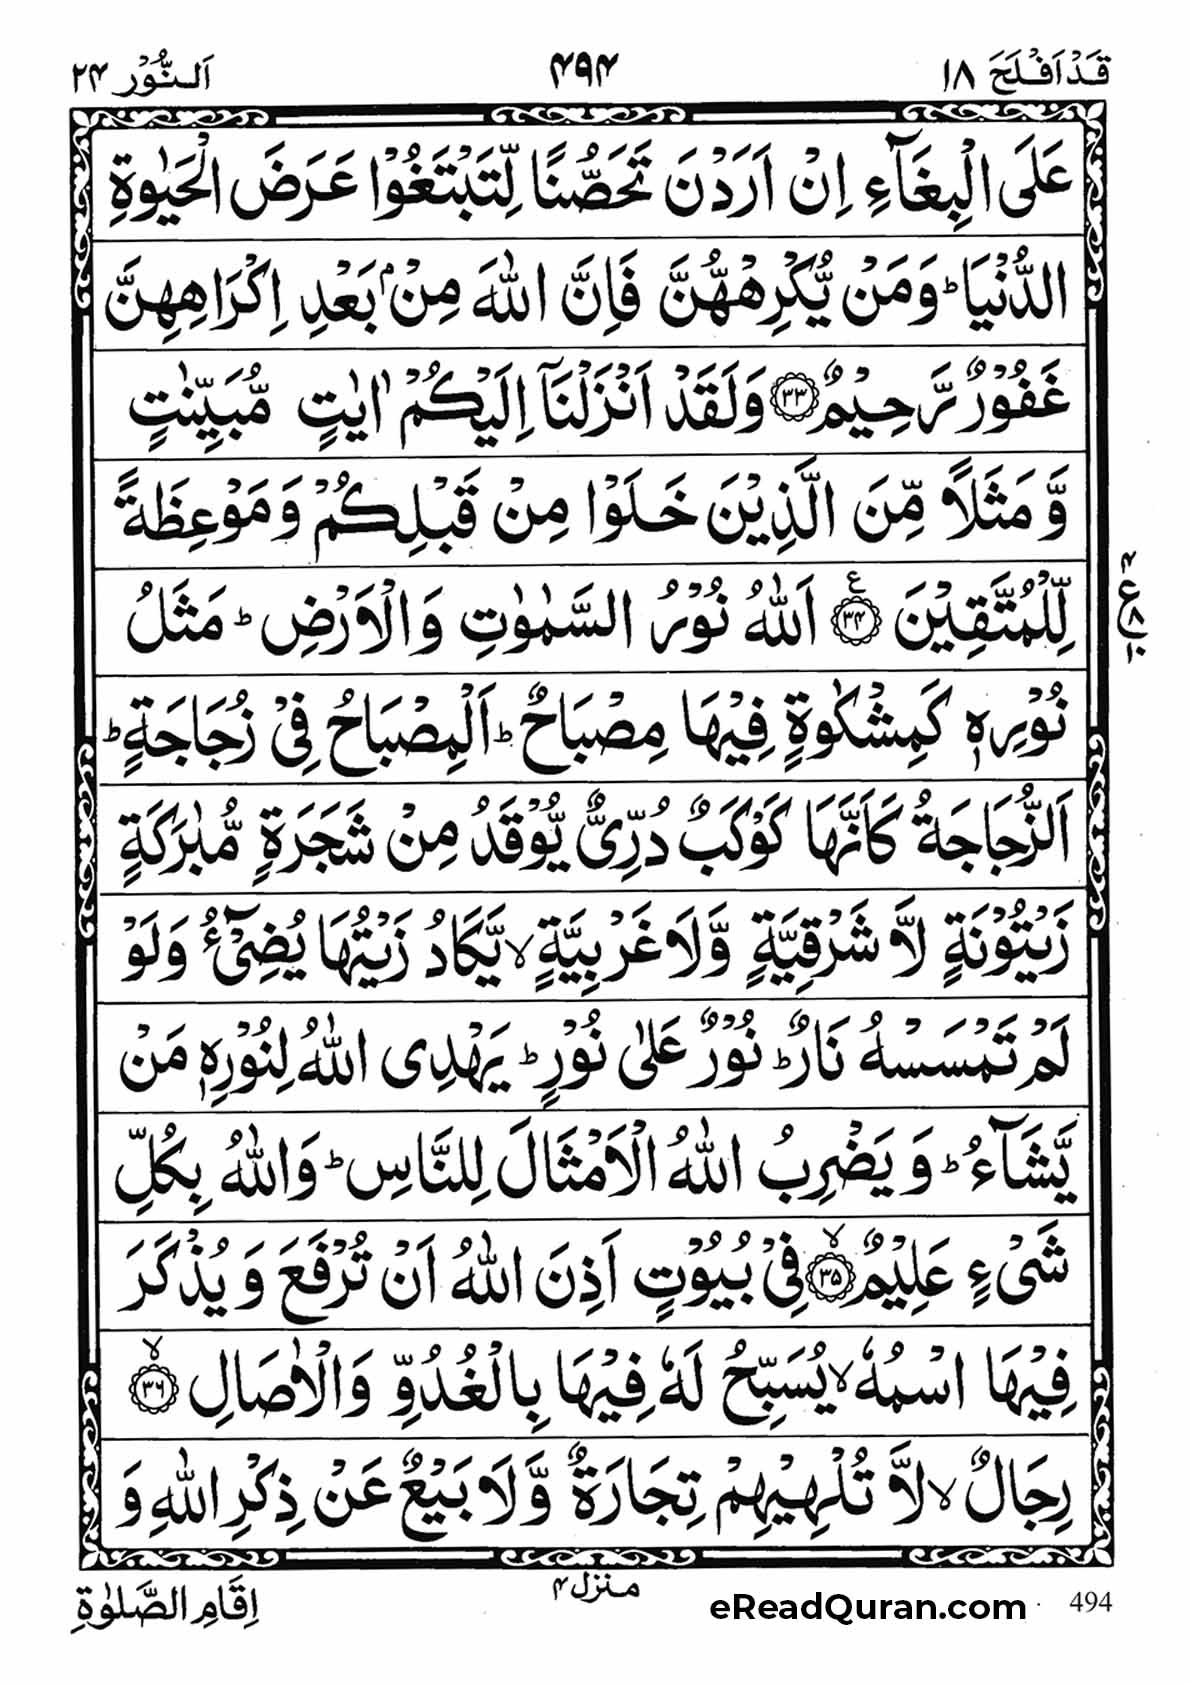 قَدْ اَفْلَحَ ١٨ ۴۹۴ اَلنُّوْر ۲۴
عَلَى الْبِغَآءِ اِنْ اَرَدْنَ تَحَصُّنًا لِّتَبْتَغُوْا عَرَضَ الْحَيٰوةِ
الدُّنْيَا ؕ وَمَنْ يُّكْرِهْهُّنَّ فَاِنَّ اللّٰهَ مِنْۢ بَعْدِ اِكْرَاهِهِنَّ
غَفُوْرٌ رَّحِيْمٌ ﴿۳۳﴾ وَلَقَدْ اَنْزَلْنَاۤ اِلَيْكُمْ اٰيٰتٍ مُّبَيِّنٰتٍ
وَّ مَثَلًا مِّنَ الَّذِيْنَ خَلَوْا مِنْ قَبْلِكُمْ وَمَوْعِظَةً
لِّلْمُتَّقِيْنَ ﴿۳۴﴾ ع اَللّٰهُ نُوْرُ السَّمٰوٰتِ وَالْاَرْضِ ؕ مَثَلُ
نُوْرِهٖ كَمِشْكٰوةٍ فِيْهَا مِصْبَاحٌ ؕ اَلْمِصْبَاحُ فِيْ زُجَاجَةٍ ؕ
اَلزُّجَاجَةُ كَاَنَّهَا كَوْكَبٌ دُرِّىٌّ يُّوْقَدُ مِنْ شَجَرَةٍ مُّبٰرَكَةٍ
زَيْتُوْنَةٍ لَّا شَرْقِيَّةٍ وَّلَا غَرْبِيَّةٍ ۙ يَّكَادُ زَيْتُهَا يُضِىْٓءُ وَلَوْ
لَمْ تَمْسَسْهُ نَارٌ ؕ نُوْرٌ عَلٰى نُوْرٍ ؕ يَهْدِى اللّٰهُ لِنُوْرِهٖ مَنْ
يَّشَآءُ ؕ وَ يَضْرِبُ اللّٰهُ الْاَمْثَالَ لِلنَّاسِ ؕ وَاللّٰهُ بِكُلِّ
شَىْءٍ عَلِيْمٌ ﴿۳۵﴾ ۙ فِيْ بُيُوْتٍ اَذِنَ اللّٰهُ اَنْ تُرْفَعَ وَ يُذْكَرَ
فِيْهَا اسْمُهٗ ۙ يُسَبِّحُ لَهٗ فِيْهَا بِالْغُدُوِّ وَالْاٰصَالِ ﴿۳۶﴾ ۙ
رِجَالٌ ۙ لَّا تُلْهِيْهِمْ تِجَارَةٌ وَّلَا بَيْعٌ عَنْ ذِكْرِ اللّٰهِ وَ
اِقَامِ الصَّلٰوةِ
منزل ۴
eReadQuran.com 494